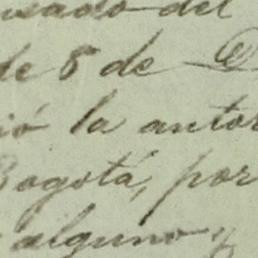 usado del
de 8 de D
ió la autor
Bogotá, por
alguno, y